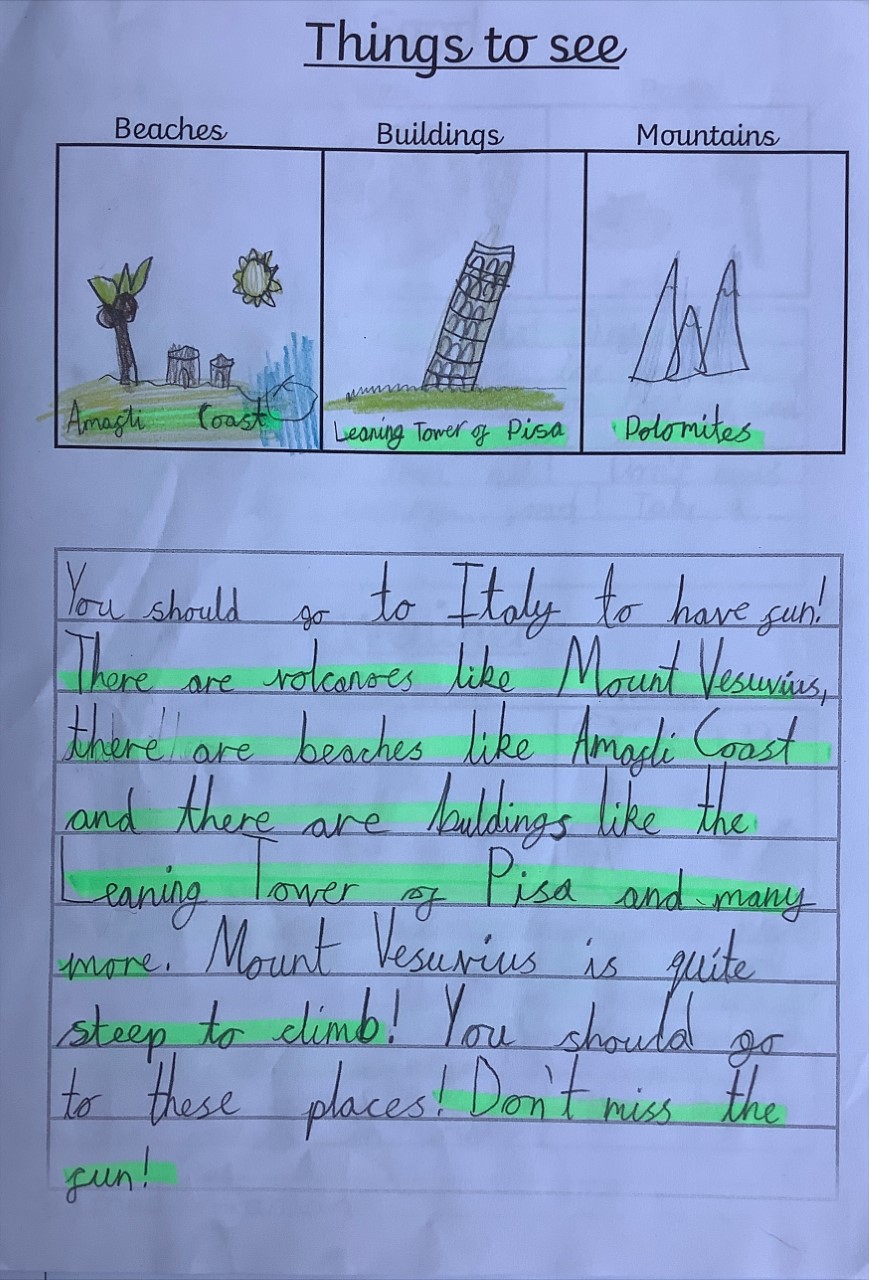 Things to see
Beaches
Buildings
Mountains
Amafli Coast
Leaning Tower of Pisa
Dolomites
You should go to Italy to have fun!
There are volcanoes like Mount Vesuvius,
there are beaches like Amafli Coast
and there are buldings like the
Leaning Tower of Pisa and many
more. Mount Vesuvius is quite
steep to climb! You should go
to these places! Don't miss the
fun!